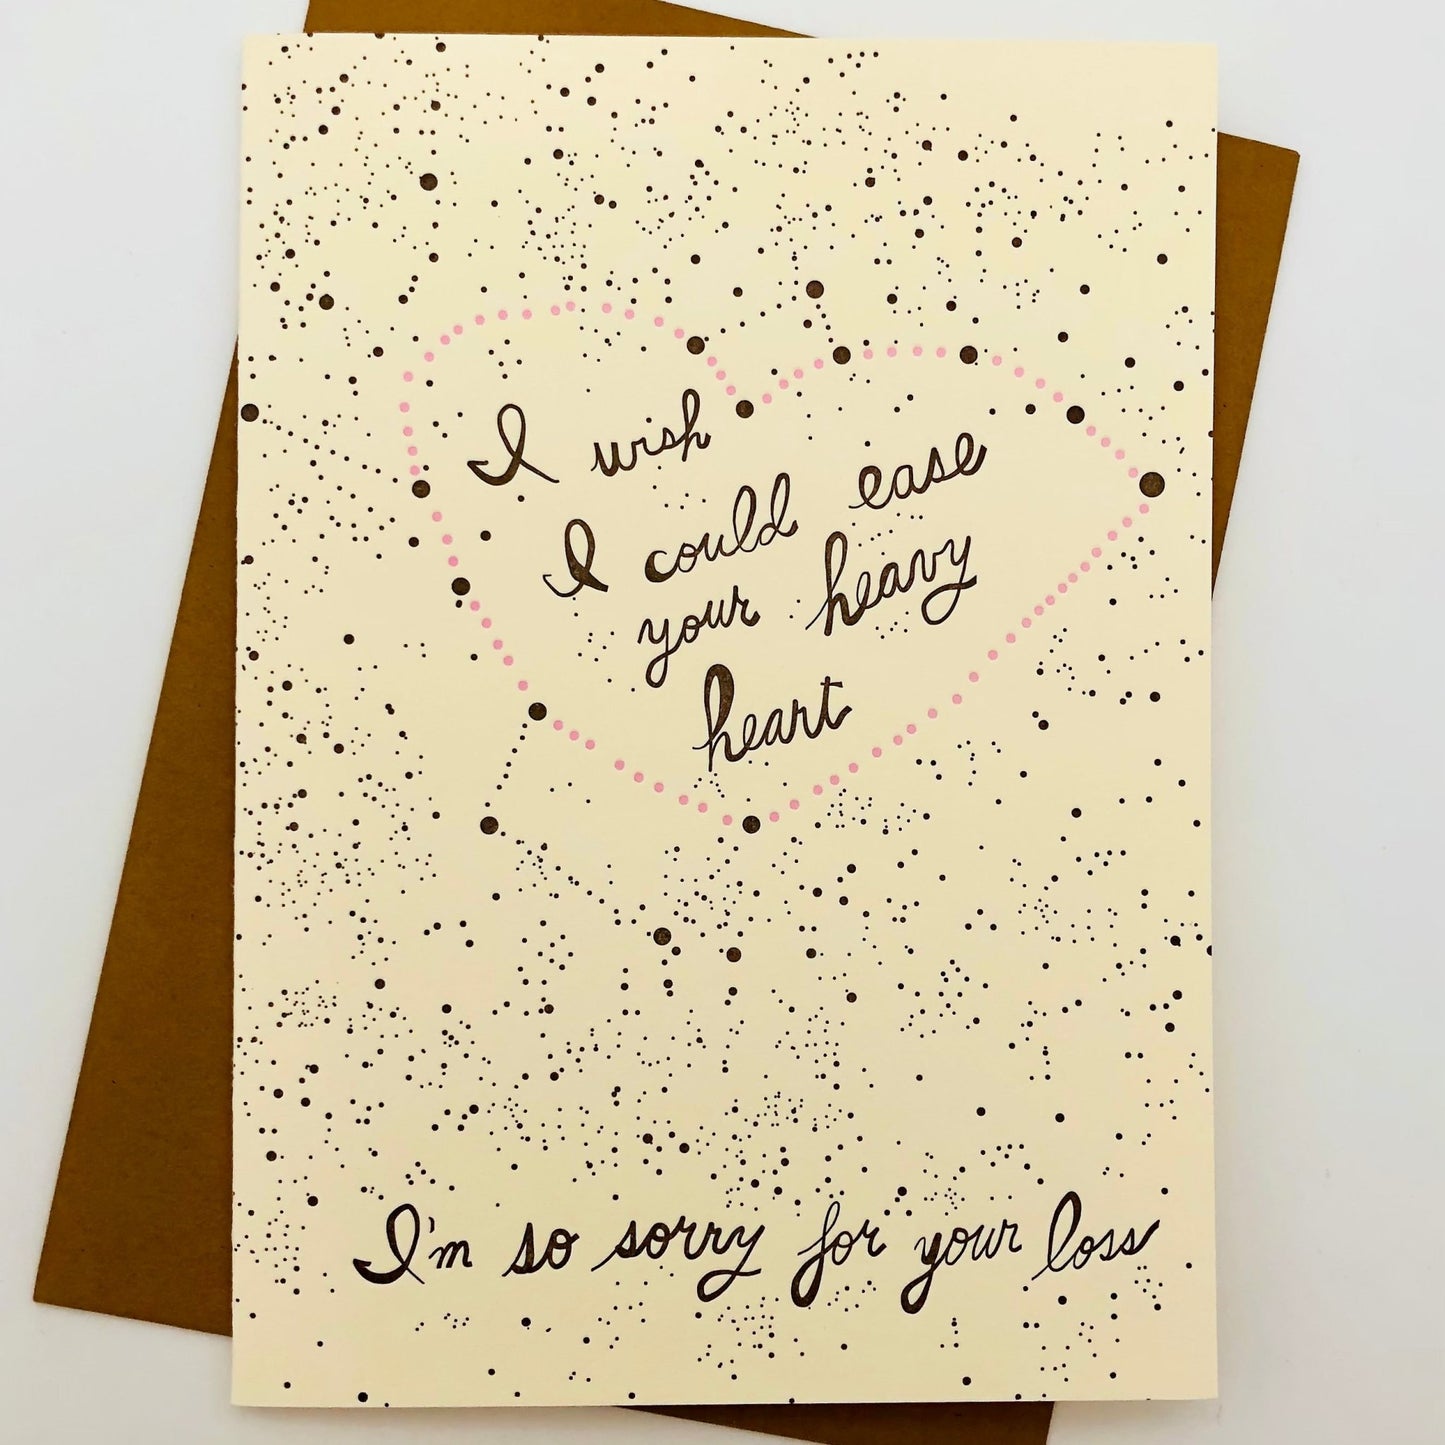 I wish
I could ease
your heavy
heart
I'm so sorry for your loss